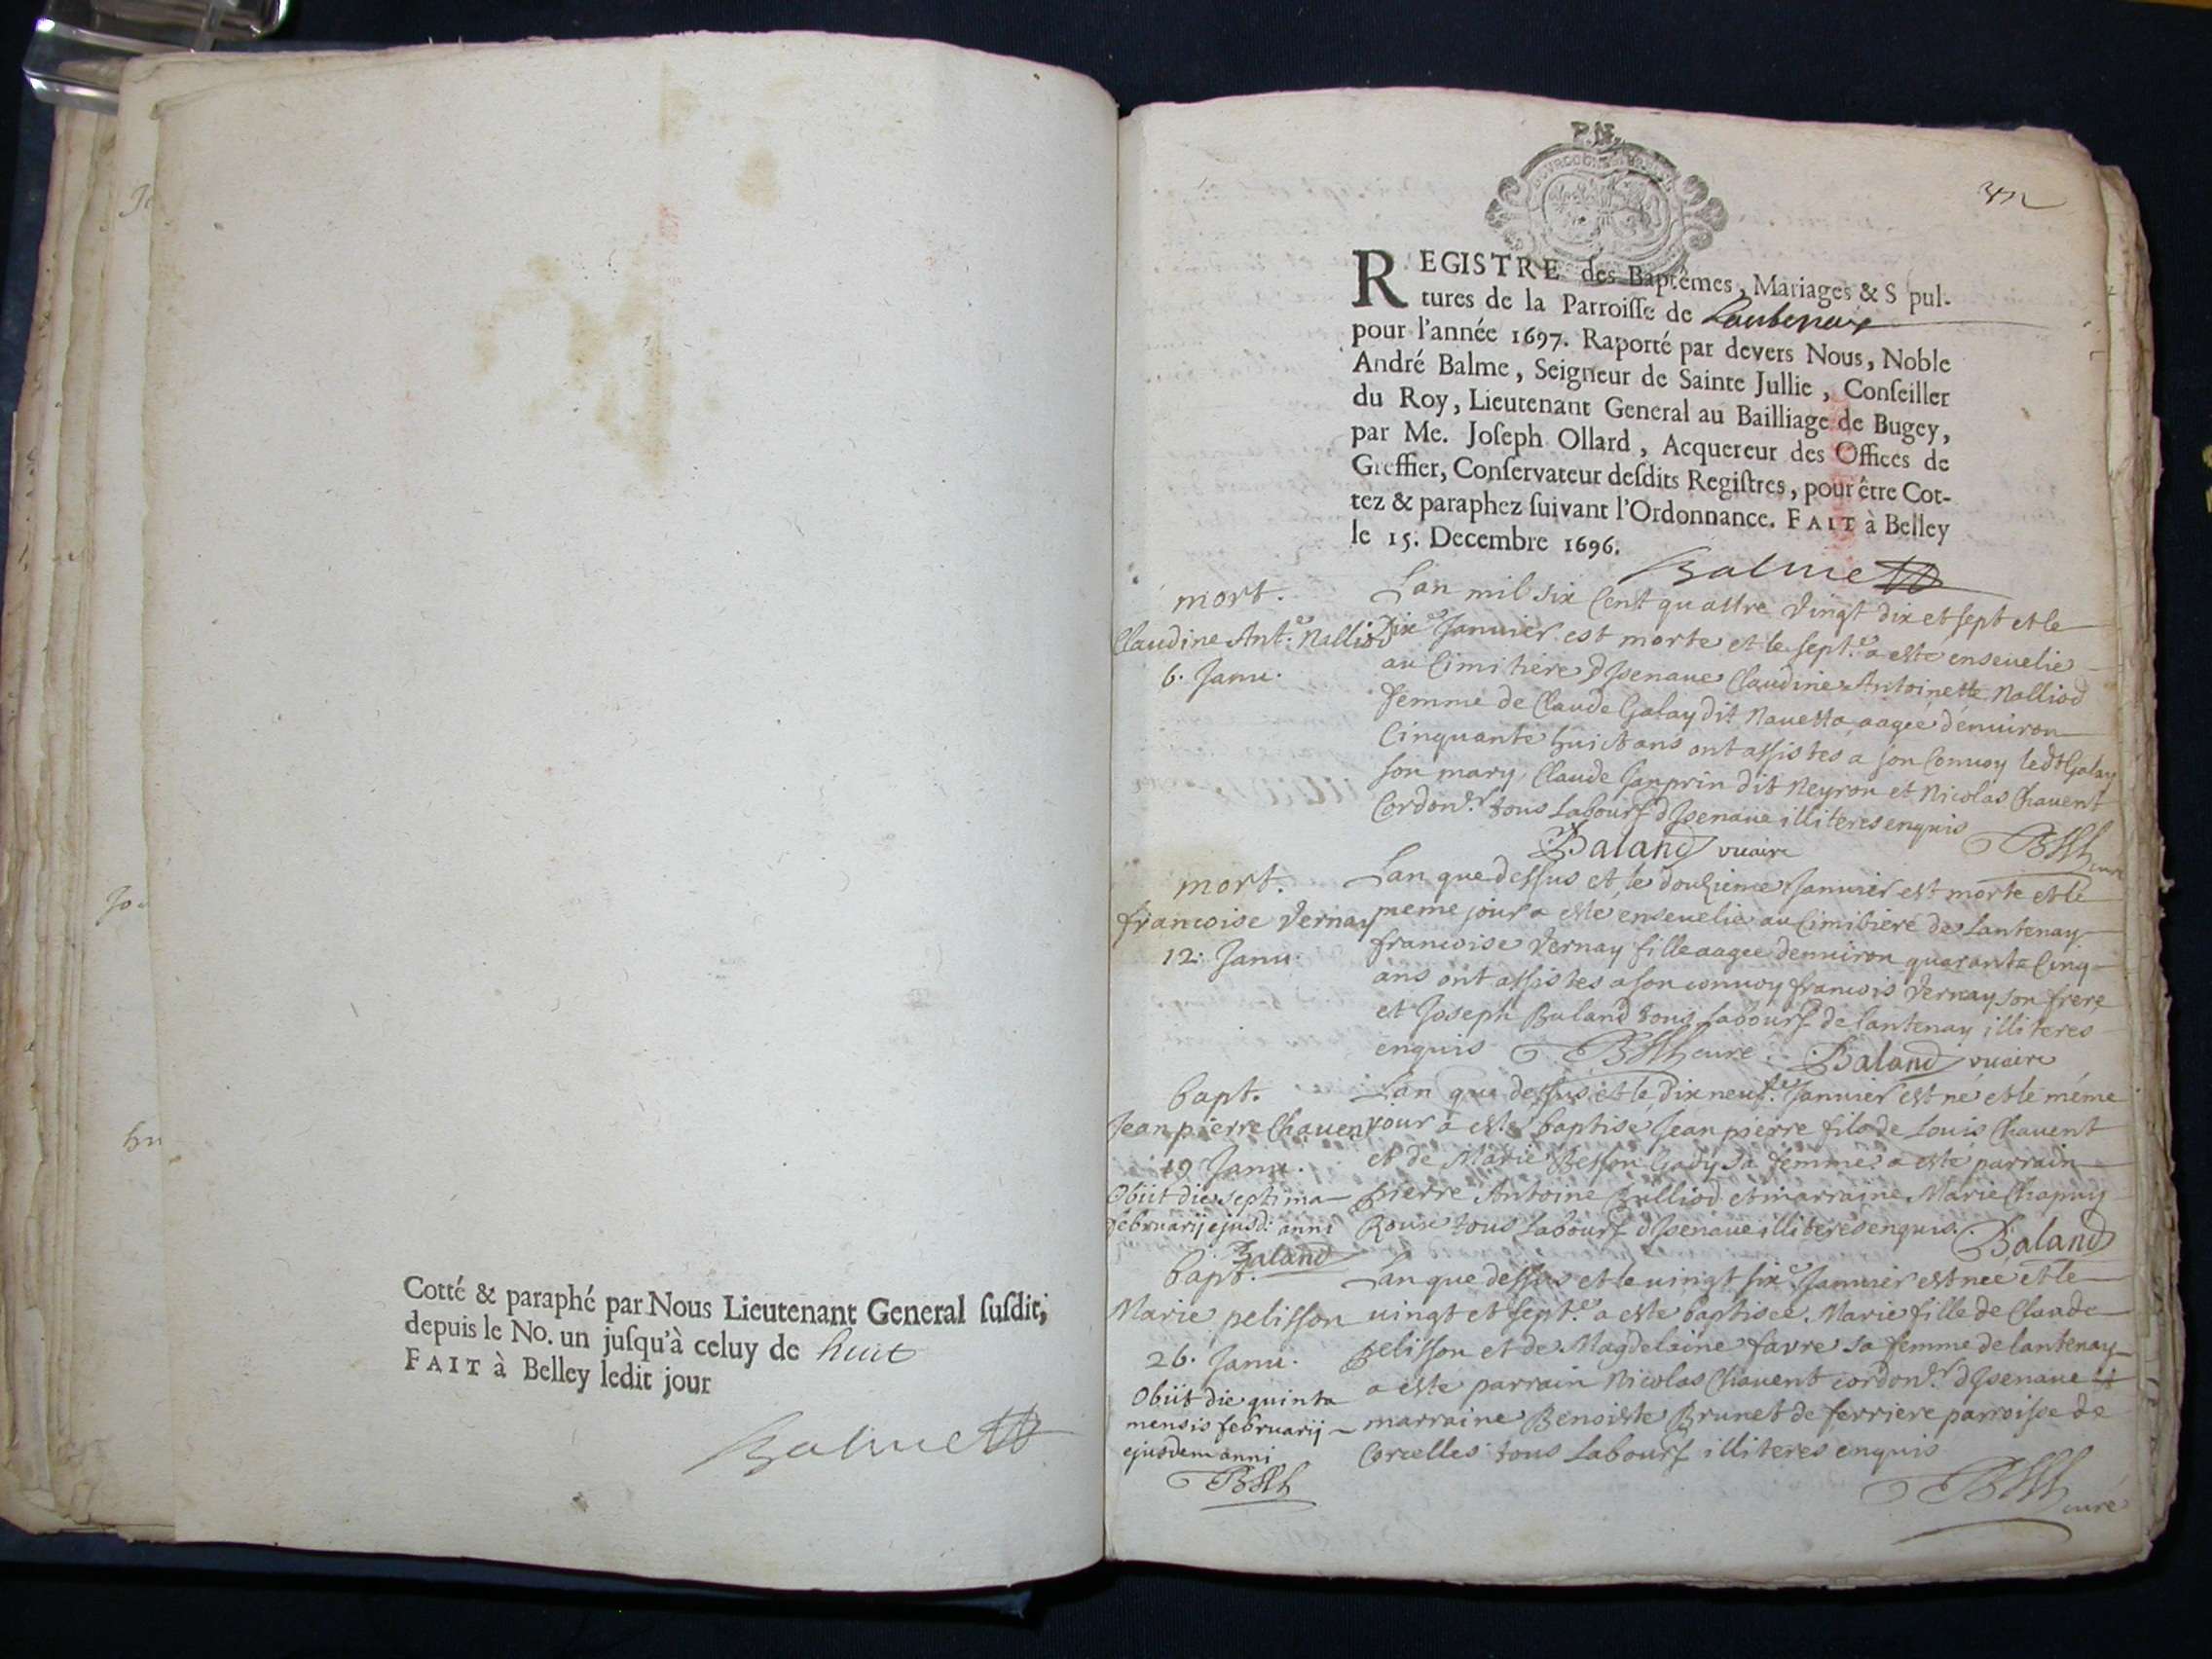 Cotté & paraphé par Nous Lieutenant General susdit;
depuis le No. un jusqu'à celuy de huit
FAIT à Belley ledit jour
Balme
REGISTRE des Baptêmes, Mariages & S pul-
tures de la Parroisse de
pour l'année 1697. Raporté par devers Nous, Noble
André Balme, Seigneur de Sainte Jullie, Conseiller
du Roy, Lieutenant General au Bailliage de Bugey,
par Me. Joseph Ollard, Acquereur des Offices de
Greffier, Conservateur desdits Registres, pour être Cot-
tez & paraphez suivant l'Ordonnance. FAIT à Belley
le 15. Decembre 1696.
Balme
mort.
Claudine Ant.e Nalliod
6. Janu.
Lan mil six Cent quattre vingt dix et sept et le
sixe Januier est morte et le sept.e a este enseuelie
au Cimitiere dIsenaue Claudine Antoinette Nalliod
femme de Claude Galay dit Nauetta aagee denuiron
Cinquante huict ans ont assistes a son Conuoy ledt Galay
son mary, Claude Janprin dit Neyron et Nicolas Chauent
Cordon.r tous Labours dIsenaue illiteres enquis
Baland vicaire
mort.
francoise Vernay
12. Janu.
Lan que dessus et le douzieme Januier est morte et le
meme jour a esté enseuelie au Cimitiere de Lantenay
francoise Vernay fille aagee denuiron quarante Cinq
ans ont assistes a son conuoy francois Vernay son frere
et Joseph Baland tous Labours de lantenay illiteres
enquis curé Baland vicaire
bapt.
Jean pierre Chauen
19 Janu.
Obiit die septima
februarij ejusd: anni
Baland
Lan que dessus et le dix neuf.e Januier est né et le méme
jour a esté baptisé Jean pierre fils de Louis Chauent
et de Marie Besson Gady sa femme a este parrain
pierre Antoine Bulliod et marraine Marie Chapuy
Roux tous Labours dIsenaue illiteres enquis. Baland
bapt.
Marie pelisson
26. Janu.
Obiit die quinta
mensis februarij
ejusdem anni
Lan que dessus et le uingt sixe Januier est neé et le
uingt et sept.e a este baptiseé Marie fille de Claude
pelisson et de Magdelaine favre sa femme de lantenay
a este parrain Nicolas Chauent cordon.r dIsenaue et
marraine Benoiste Brunet de ferriere parroisse de
Corcelles tous Labours illiteres enquis
curé